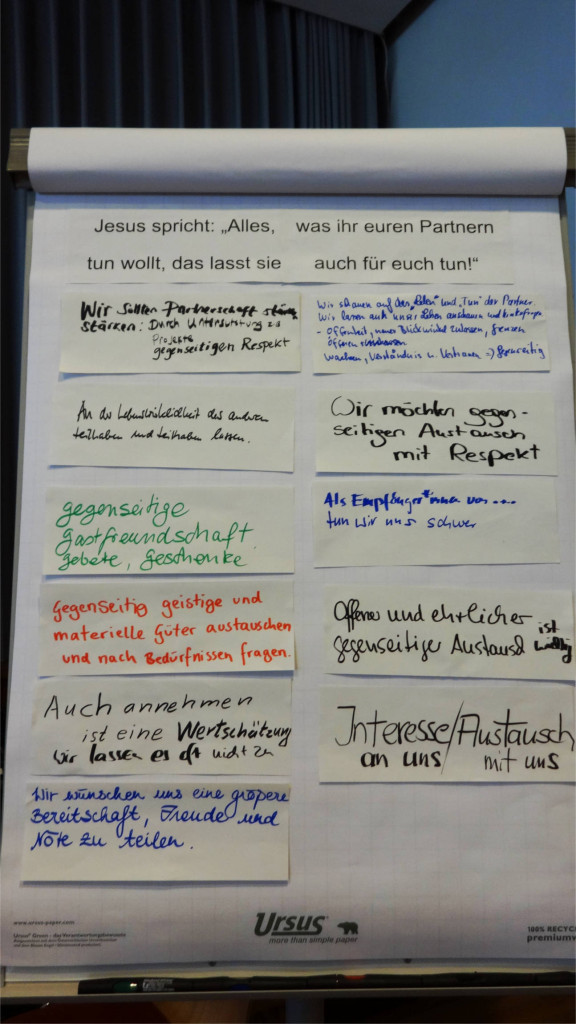 Jesus spricht: „Alles, was ihr euren Partnern
tun wollt, das lasst sie auch für euch tun!“
Wir sollten Partnerschaft
stärken: Durch Unterstützung zu
Projekte
gegenseitigen Respekt
An der Lebenswirklichkeit des anderen
teilhaben und teilhaben lassen.
gegenseitige
Gastfreundschaft
Gebete, Geschenke
Gegenseitig geistige und
materielle Güter austauschen
und nach Bedürfnissen fragen.
Auch annehmen
ist eine Wertschätzung
Wir lassen es oft nicht zu
Wir wünschen uns eine größere
Bereitschaft, Freude und
Nöte zu teilen.
Wir schauen auf das „Leben“ und „Tun“ der Partner.
Wir lassen auch unser Leben anschauen und hinterfragen
- Offenheit, neue Blickwinkel zulassen, Grenzen
öffnen
wachsen, Verständnis u. Vertrauen => Gegenseitig
Wir möchten gegen-
seitigen Austausch
mit Respekt
Als Empfänger*innen von ...
tun wir uns schwer
Offener und ehrlicher
gegenseitiger Austausch ist
wichtig
Interesse/Austausch
an uns / mit uns
www.ursus-paper.com
Ursus® Green - das Verantwortungsbewusste
Ursus®
more than simple paper
100% RECYC
premiumw